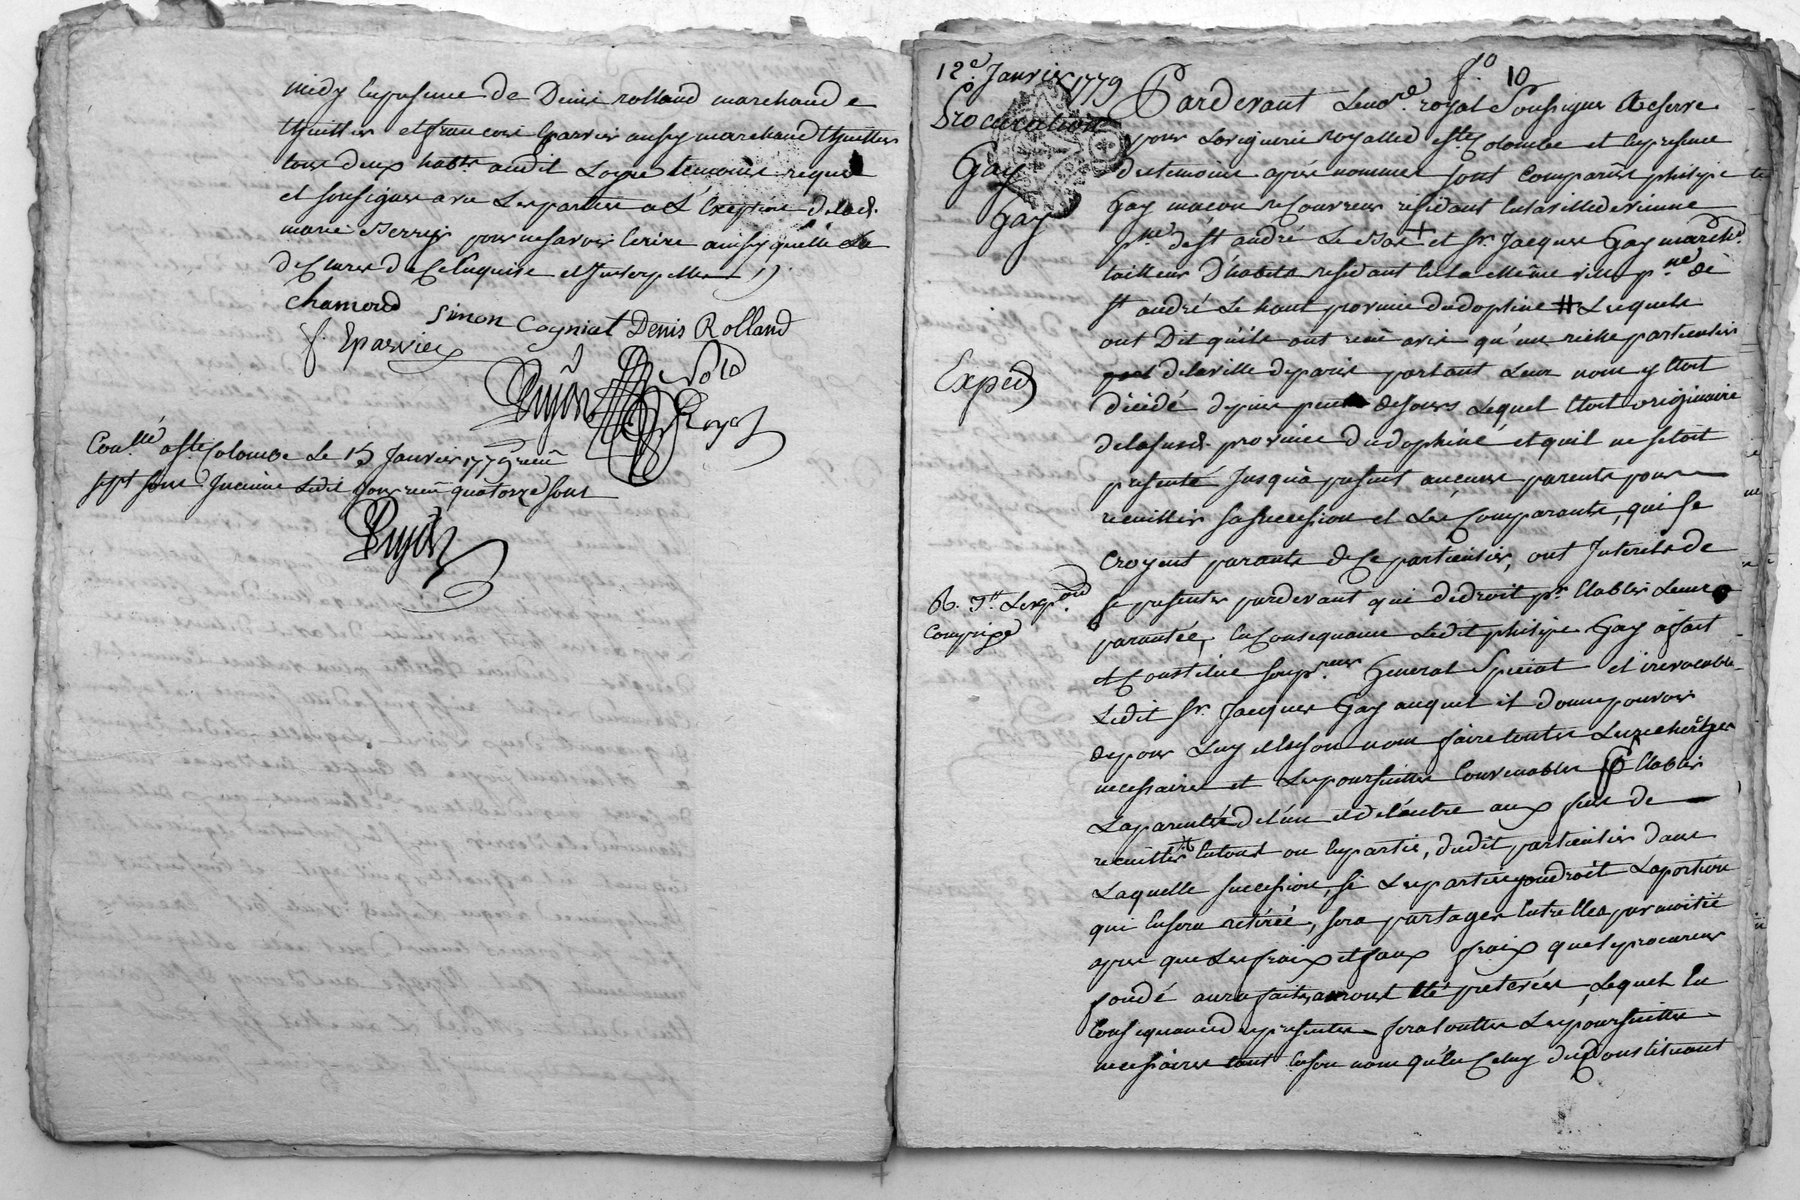 midy en presence de Denis rolland marchand
thuillier et francois Eparvier aussy marchand thuillier
tous deux habts audit Loyre temoins requis
et soussignes avec Les parties a L'Exeption de lad.
marie pour ne savoir Ecrire ainsy qu'elle La
declaré de Ce Enquise et Interpellee
Chamond Simon Cogniat Denis Rolland
f. Eparvier
Pujon Nore
Royal
Conllé a Ste Colombe Le 15 Janvier 1779 reçu
sept sous Insinué Ledit jour reçu quatorze sous
Pujon
12e. Janvier 1779
Procuration
Gay
Gay
Exped
fo. 10
Pardevant Le nore. royal soussigné Reservé
pour La viguerie royalle de ste Colombe et en presence
des temoins après nommés sont Comparus philipe
Gay macon Recouvreur residant en la ville de vienne
psse de st andré Le Bas + et sr. Jacques Gay marchd.
tailleur d'habits residant en la même ville psse de
st andré Le haut province du dophiné # Lesquels
ont Dit qu'ils ont reçu avis qu'un riche particulier
de la ville de paris portant Leur nom y Etoit
décédé depuis peu de jours Lequel Etoit originaire
de la susd. province du dophiné et quil ne s'etoit
presenté Jusqu'a present aucuns parents pour
recuillir sa succession et Les Comparants, qui se
Croyent parants de Ce particulier, ont Interets de
se presenter pardevant qui de droit pr. Etablir Leur
parantée, En Consequance Ledit philipe Gay a fait
et Constitué son procureur General Special et irrevocable
Ledit sr. Jacques Gay auquel il donne pouvoir
de pour Luy et En son nom faire toutes Les recherches
necessaires et Les poursuittes Convenables pr Etablir
La parentée de L'un et de L'autre aux fins de
recuillir En tout ou En partie, dudit particulier dans
Laquelle succession, si Les parties Laportion
qui En sera retirée, sera partagée Entre Elles par moitié
apres que Les fraix et faux fraix que Le procureur
fondé aura faits, auront Eté préLevés, Lequel En
Consequance des presentes fera toutes Les poursuittes
necessaires tant En son nom qu'En Celuy du Constituant